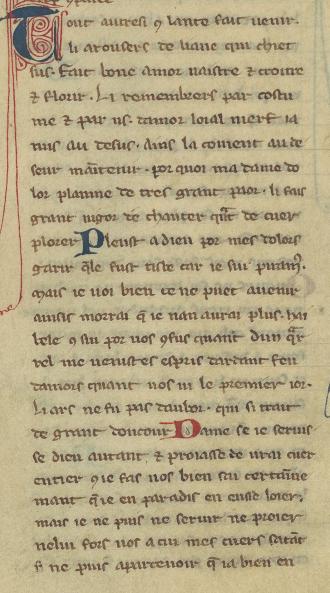 Tout autresi ꝯ lante fait uenir.
li arousers de liaue qui chiet
sus. Fait bone amor naistre ⁊ croitre
⁊ florir. Li remembrers par costu
me ⁊ par us. damor loial niert ia
nus au desus. Ains la couient au de
seur maĩtenir. por quoi ma dame do
lor plainne de tres grant paor. li fais
grant uigor de chanter qũt de cuer
plorer Pleust a dieu por mes dolors
garir q̃le fust tisbe car ie sui piram9.
mais ie uoi bien ce ne puet auenir
ainsis morrai q̃ ie nan aurai plus. hai
bele ꝯ sui por uos ꝯfus quant dun q̃r
rel me uenistes espris dardant feu
damors quant uos ui le premier ior.
Li ars ne fu pas daubor. qui si trait
de grant doucour Dame se ie seruis
se dieu autant ⁊ proiasse de urai cuer
entier ꝯ ie fas uos bien sai certaine
mant q̃ ie en paradis en eusse loier.
mais ie ne puis ne seruir ne proier
nelui fors uos a cui mes cuers satãt
si ne puis apartenoir q̃ ia bien en